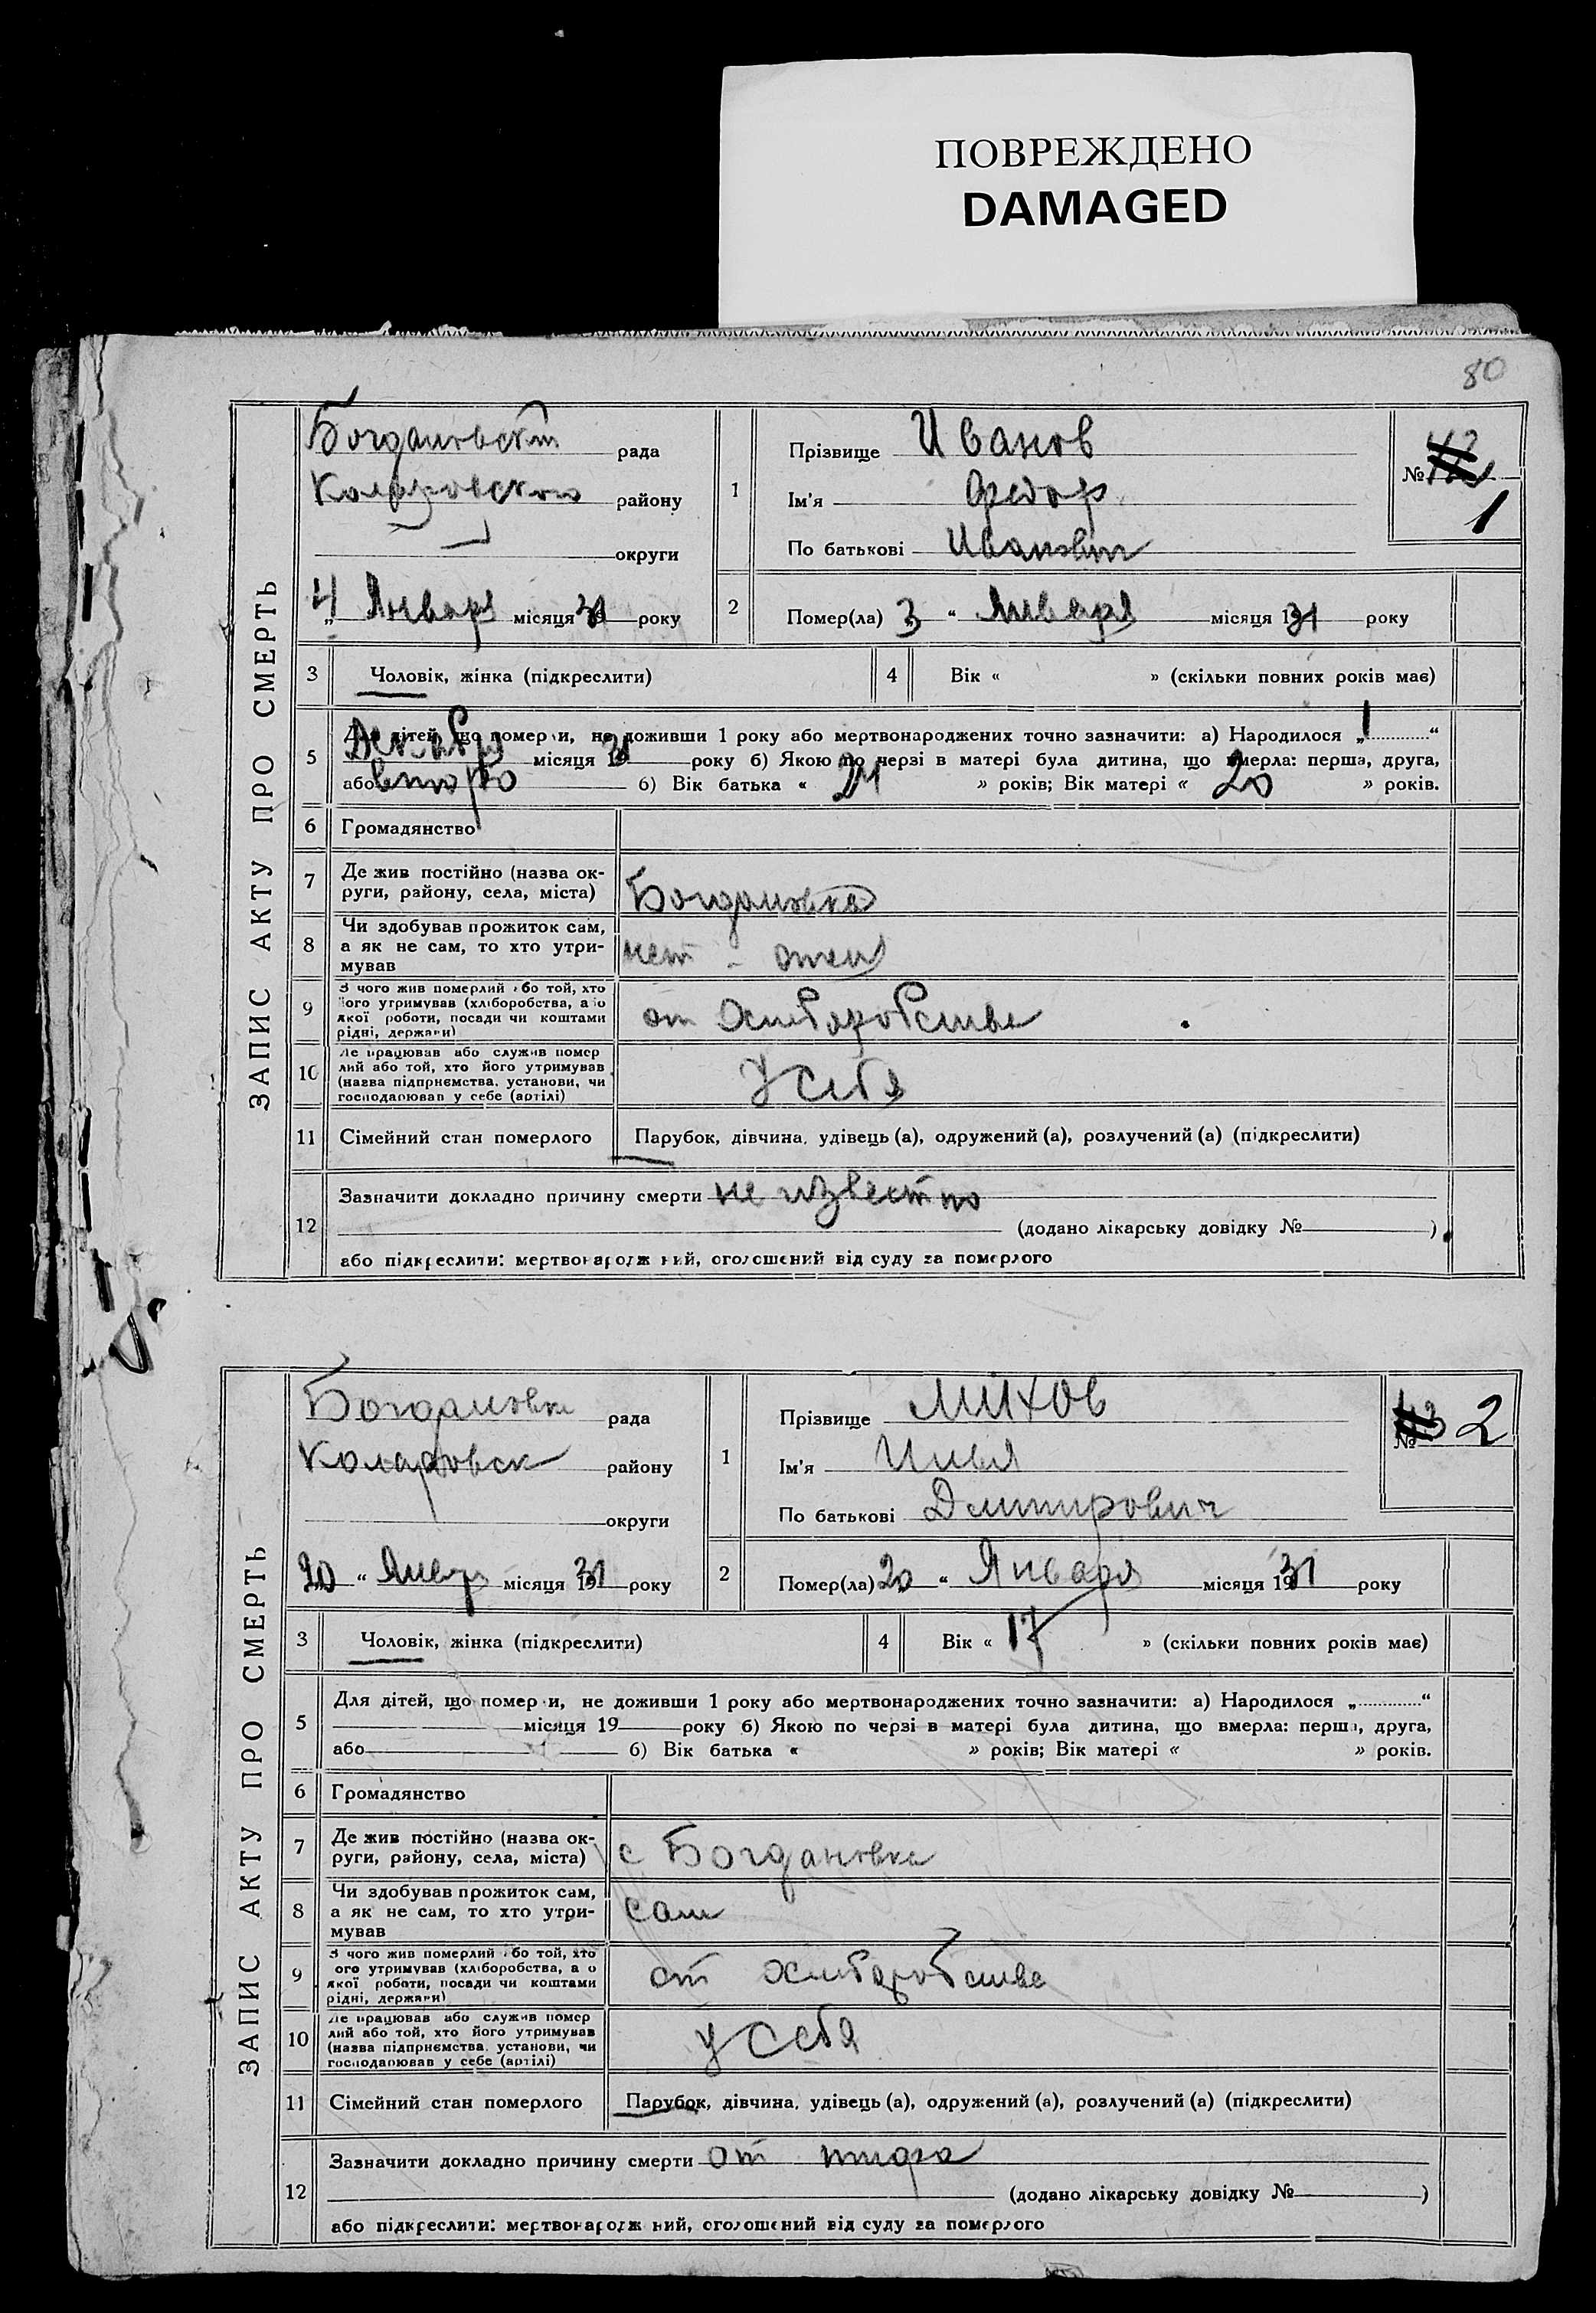 ПОВРЕЖДЕНО
DAMAGED
80
ЗАПИС АКТУ ПРО СМЕРТЬ
Богдановск рада
Коларовского району
округи
„4 Января місяця 1931 року
1
Прізвище Иванов
Ім'я Федор
По батькові Иванович
№ 1
2
Помер(ла) 3 “ Января місяця 1931 року
3 Чоловік, жінка (підкреслити)
4 Вік « » (скільки повних років має)
5 Для дітей, що померли, не доживши 1 року або мертвонароджених точно зазначити: а) Народилося „1“
Декабря місяця 19 року б) Якою по черзі в матері була дитина, що вмерла: перша, друга,
або второ б) Вік батька « 21 » років; Вік матері « 20 » років.
6 Громадянство
7 Де жив постійно (назва ок-
руги, району, села, міста) Богдановка
8 Чи здобував прожиток сам,
а як не сам, то хто утри-
мував нет - отец
9 З чого жив померлий або той, хто
його утримував (хліборобства, або
якої роботи, посади чи коштами
рідні, держави) от Хлеборобства
10 Де працював або служив помер
лий або той, хто його утримував
(назва підприємства, установи, чи
господарював у себе (артілі) У себя
11 Сімейний стан померлого Парубок, дівчина, удівець (а), одружений (а), розлучений (а) (підкреслити)
12 Зазначити докладно причину смерти не известно
(додано лікарську довідку № )
або підкреслити: мертвонароджений, оголошений від суду за померлого
ЗАПИС АКТУ ПРО СМЕРТЬ
Богдановка рада
Коларовск району
округи
20 “ Январ місяця 1931 року
1
Прізвище Михов
Ім'я Илья
По батькові Дмитирович
№ 2
2
Помер(ла) 20 “ Января місяця 1931 року
3 Чоловік, жінка (підкреслити)
4 Вік « 17 » (скільки повних років має)
5 Для дітей, що померли, не доживши 1 року або мертвонароджених точно зазначити: а) Народилося „ “
місяця 19 року б) Якою по черзі в матері була дитина, що вмерла: перша, друга,
або б) Вік батька « » років; Вік матері « » років.
6 Громадянство
7 Де жив постійно (назва ок-
руги, району, села, міста) с Богдановка
8 Чи здобував прожиток сам,
а як не сам, то хто утри-
мував сам
9 З чого жив померлий або той, хто
його утримував (хліборобства, або
якої роботи, посади чи коштами
рідні, держави) от Хлеборобства
10 Де працював або служив помер
лий або той, хто його утримував
(назва підприємства, установи, чи
господарював у себе (артілі) у себя
11 Сімейний стан померлого Парубок, дівчина, удівець (а), одружений (а), розлучений (а) (підкреслити)
12 Зазначити докладно причину смерти от тифа
(додано лікарську довідку № )
або підкреслити: мертвонароджений, оголошений від суду за померлого